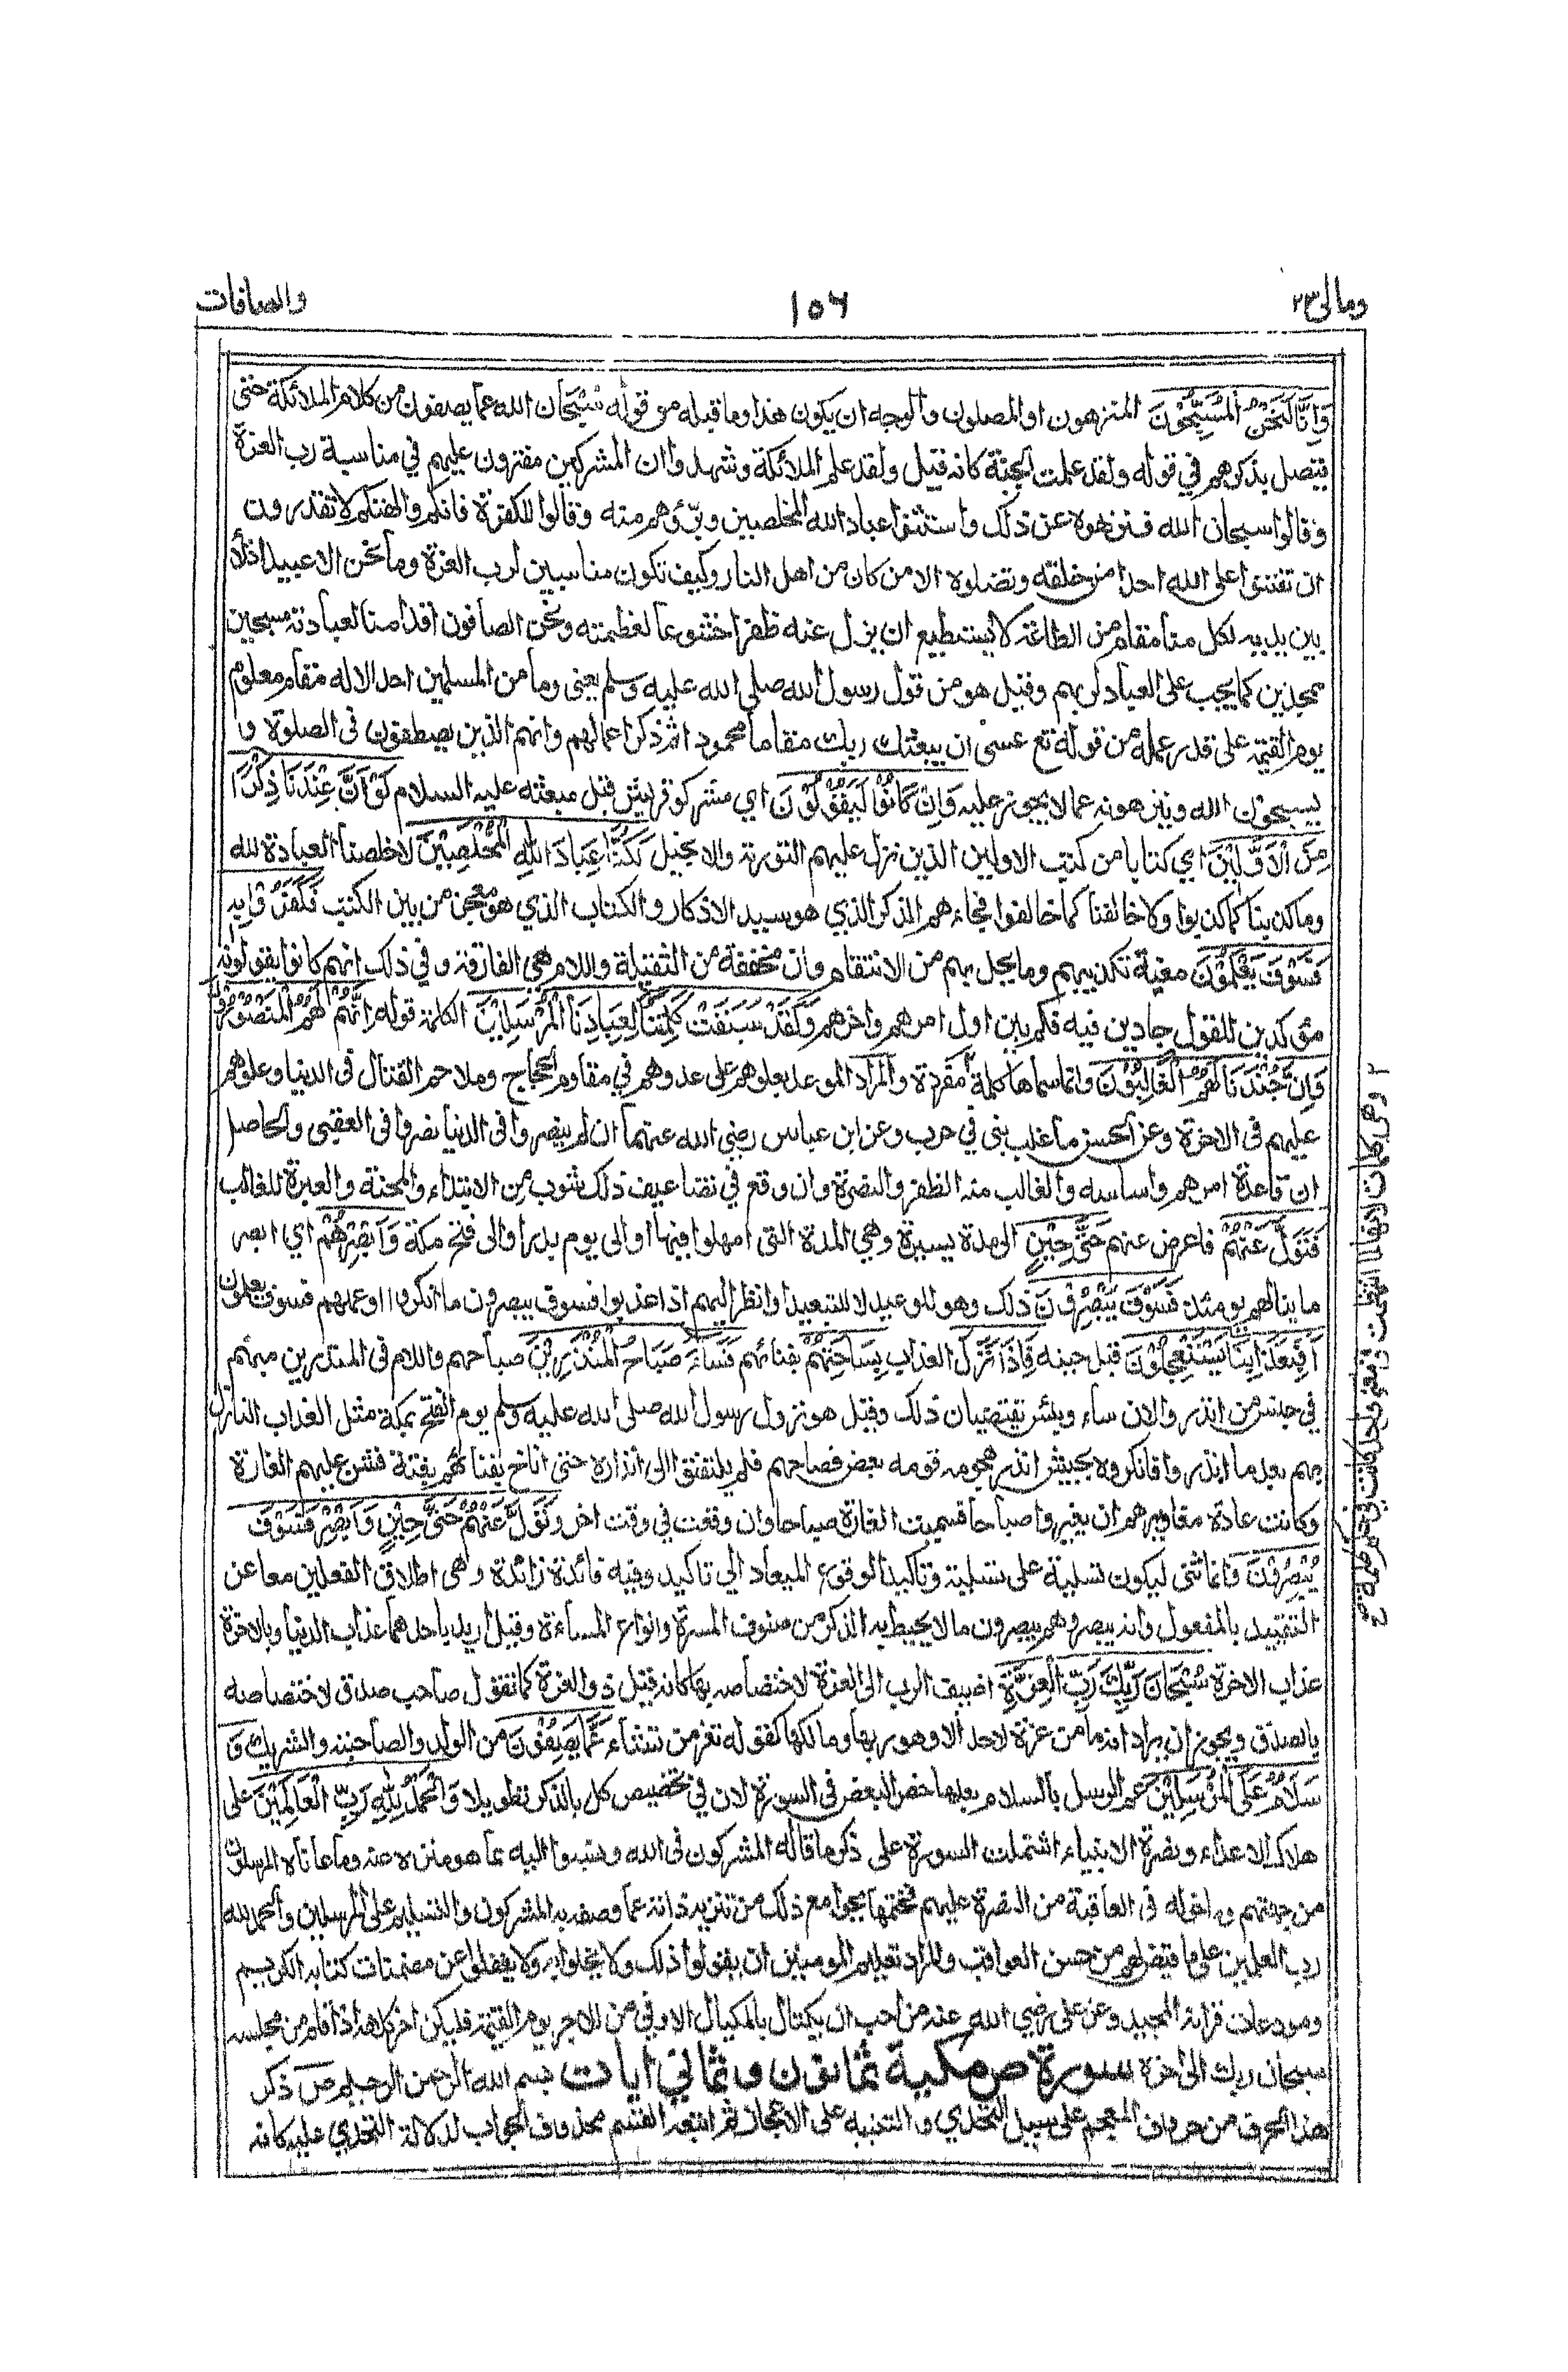 ومالى ٢٣
١٥٦
والصافات
وَاِنَّا لَنَحْنُ الْمُسَبِّحُوْنَ المنزهون او المصلون والوجه ان يكون هذا وما قبله من قوله سُبْحَان الله عما يصفون من كلام الملائكة حتى
يتصل بذكرهم في قوله ولقد علمت الجنة كانه قيل ولقد علم الملائكة وشهدوا ان المشركين مفترون عليهم في مناسبة رب العزة
وقالوا سبحان الله فنزهوه عن ذلك واستثنوا عباد الله المخلصين وبرّؤهم منه وقالوا للكفرة فانكم والهتكم لا تقدرون
ان تفتنوا على الله احدا من خلقه وتضلوه الا من كان من اهل النار وكيف نكون مناسبين لرب العزة وما نحن الا عبيد اذلاء
بين يديه لكل منا مقام من الطاعة لا يستطيع ان يزل عنه ظفرا خشوعا لعظمته ونحن الصافون اقدامنا لعبادته مسبحين
ممجدين كما يجب على العباد لربهم وقيل هو من قول رسول الله صلى الله عليه وسلم يعنى وما من المسلمين احد الا له مقام معلوم
يوم القيمة على قدر عمله من قوله تع عسى ان يبعثك ربك مقاما محمودا ثم ذكر اعمالهم وانهم الذين يصطفون فى الصلوة و
يسبحون الله وينزهونه عما لا يجوز عليه وَاِنْ كَانُوْا لَيَقُوْلُوْنَ اي مشركو قريش قبل مبعثه عليه السلام لَوْ اَنَّ عِنْدَنَا ذِكْرًا
مِنَ الْاَوَّلِيْنَ اي كتابا من كتب الاولين الذين نزل عليهم التورية والانجيل لَكُنَّا عِبَادَ اللّٰهِ الْمُخْلَصِيْنَ لاخلصنا العبادة لله
وما كذبنا كما كذبوا ولا خالفنا كما خالفوا فجاءهم الذكر الذي هو سيد الاذكار والكتاب الذي هو معجز من بين الكتب فَكَفَرُوْا بِه
فَسَوْفَ يَعْلَمُوْنَ مغبة تكذيبهم وما يحل بهم من الانتقام وان مخففة من الثقيلة واللام هي الفارقة وفي ذلك انهم كانوا يقولونه
مؤكدين للقول جادين فيه فكم بين اول امرهم واخرهم وَلَقَدْ سَبَقَتْ كَلِمَتُنَا لِعِبَادِنَا الْمُرْسَلِيْنَ الكلمة قوله اِنَّهُمْ لَهُمُ الْمَنْصُوْرُوْنَ
وَاِنَّ جُنْدَنَا لَهُمُ الْغَالِبُوْنَ وانما سماها كلمة مفردة والمراد الموعد بعلوهم على عدوهم في مقاوم الحجاج وملاحم القتال فى الدنيا وعلوهم
عليهم فى الاخرة وعن الحسن ما غلب نبى في حرب وعن ابن عباس رضي الله عنهما ان لم ينصروا فى الدنيا نصروا فى العقبى والحاصل
ان قاعدة امرهم واساسه والغالب منه الظفر والنصرة وان وقع في تضاعيف ذلك شوب من الابتلاء والمحنة والعبرة للغالب
فَتَوَلَّ عَنْهُمْ فاعرض عنهم حَتّٰى حِيْنٍ الى مدة يسيرة وهي المدة التى امهلوا فيها او الى يوم بدر او الى فتح مكة وَاَبْصِرْهُمْ اي ابصر
ما ينالهم يومئذ فَسَوْفَ يُبْصِرُوْنَ ذلك وهو للوعيد لا للتبعيد او انظر اليهم اذا عذبوا فسوف يبصرون ما انكروا او اعلمهم فسوف يعلمون
اَفَبِعَذَابِنَا يَسْتَعْجِلُوْنَ قبل حينه فَاِذَا نَزَلَ العذاب بِسَاحَتِهِمْ بفنائهم فَسَاءَ صَبَاحُ الْمُنْذَرِيْنَ صباحهم واللام فى المنذرين مبهم
في جنس من انذروا لان ساء وبئس يقتضيان ذلك وقيل هو نزول رسول الله صلى الله عليه وسلم يوم الفتح بمكة مثل العذاب النازل
بهم بعد ما انذروا فانكروه بجيش انذر هجومه قومه بعض نصاحهم فلم يلتفتوا الى انذاره حتى اناخ بفنائهم بغتة فشن عليهم الغارة
وكانت عادة مغاويرهم ان يغيروا صباحا فسميت الغارة صباحا وان وقعت في وقت اخر وَتَوَلَّ عَنْهُمْ حَتّٰى حِيْنٍ وَاَبْصِرْ فَسَوْفَ
يُبْصِرُوْنَ وانما ثنى ليكون تسلية على تسلية وتاكيدا لوقوع الميعاد الى تاكيد وفيه فائدة زائدة وهى اطلاق الفعلين معا عن
التقييد بالمفعول وانه يبصر وهم يبصرون ما لا يحيط به الذكر من صنوف المسرة وانواع المساءة وقيل اريد باحدهما عذاب الدنيا وبالاخرة
عذاب الاخرة سُبْحَانَ رَبِّكَ رَبِّ الْعِزَّةِ اضيف الرب الى العزة لاختصاصه بها كانه قيل ذو العزة كما تقول صاحب صدق لاختصاصه
بالصدق ويجوز ان يراد انه ما من عزة لاحد الا وهو ربها ومالكها كقوله تعز من تشاء عَمَّا يَصِفُوْنَ من الولد والصاحبة والشريك وَ
سَلَامٌ عَلَى الْمُرْسَلِيْنَ عم الرسل بالسلام بعد ما خص البعض فى السورة لان في تخصيص كل بالذكر تطويلا وَالْحَمْدُ لِلّٰهِ رَبِّ الْعَالَمِيْنَ على
هلاك الاعداء ونصرة الانبياء اشتملت السورة على ذكر ما قاله المشركون فى الله ونسبوا اليه مما هو منزه عنه وما عاناه المرسلون
من جهتهم وما خوله فى العاقبة من النصرة عليهم فختمها بجوامع ذلك من تنزيه ذاته عما وصفه به المشركون والتسليم على المرسلين والحمد لله
رب العلمين على ما قيض لهم من حسن العواقب والمراد تعليم المومنين ان يقولوا ذلك ولا يخلوا به ولا يغفلوا عن مضمنات كتابه الكريم
ومودعات قرانه المجيد وعن على رضي الله عنه من احب ان يكتال بالمكيال الاوفى من الاجر يوم القيمة فليكن اخر كلامه اذا قام من مجلسه
سبحان ربك الى اخره سورة ص مكية ثمانون وثماني ايات بسم الله الرحمن الرحيم صٓ ذكر
هذا الحرف من حروف المعجم على سبيل التحدي والتنبيه على الاعجاز ثم اتبعه القسم محذوف الجواب لدلالة التحدي عليه كانه